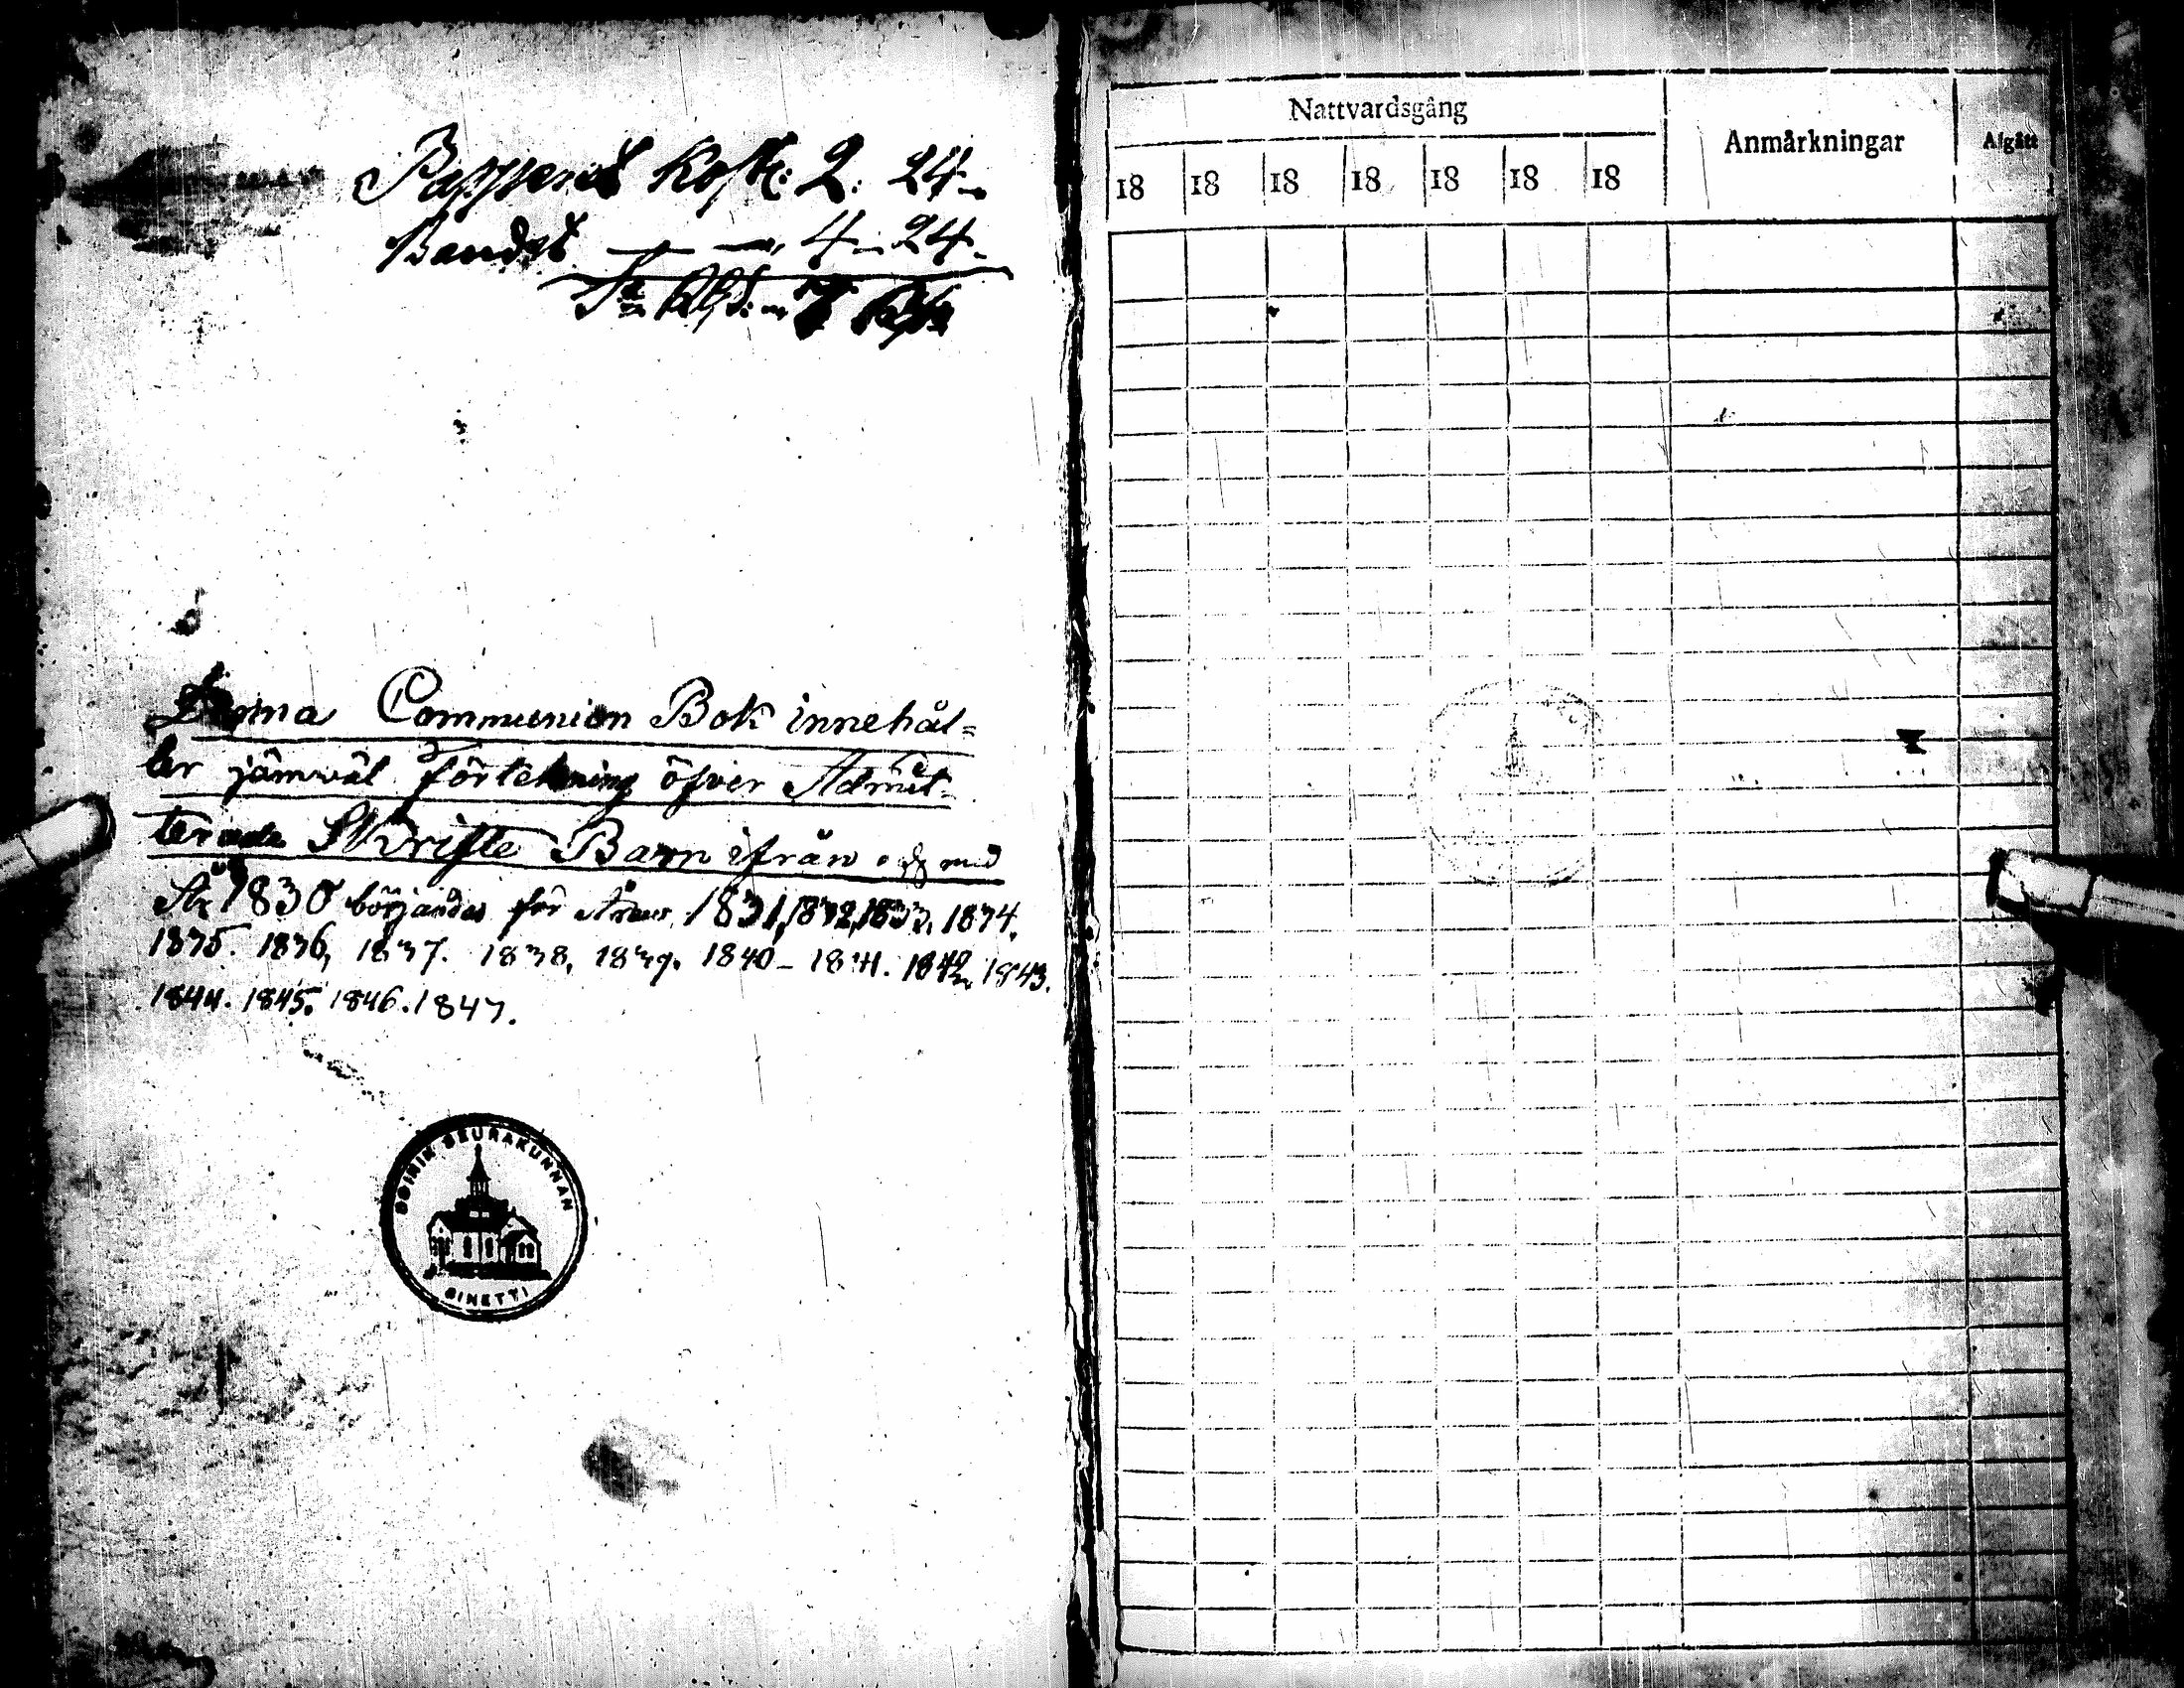 Papperet Kost: 2. 24.
Bandet — — 4 – 24.
Sa Rbd:
Denna Communion Bok innehål=
ler jämwäl förtekning öfver Admit-
terade Skrifte Barn ifrån och med
År 1830 börjandes för Åren 1831, 1832, 1833. 1834.
1835. 1836, 1837. 1838. 1839. 1840 – 1841. 1842. 1843.
1844. 1845. 1846. 1847.
SOININ SEURAKUNNAN
SINETTI
Nattvardsgång
Anmärkningar
Afgått
18 18 18 18 18 18 18